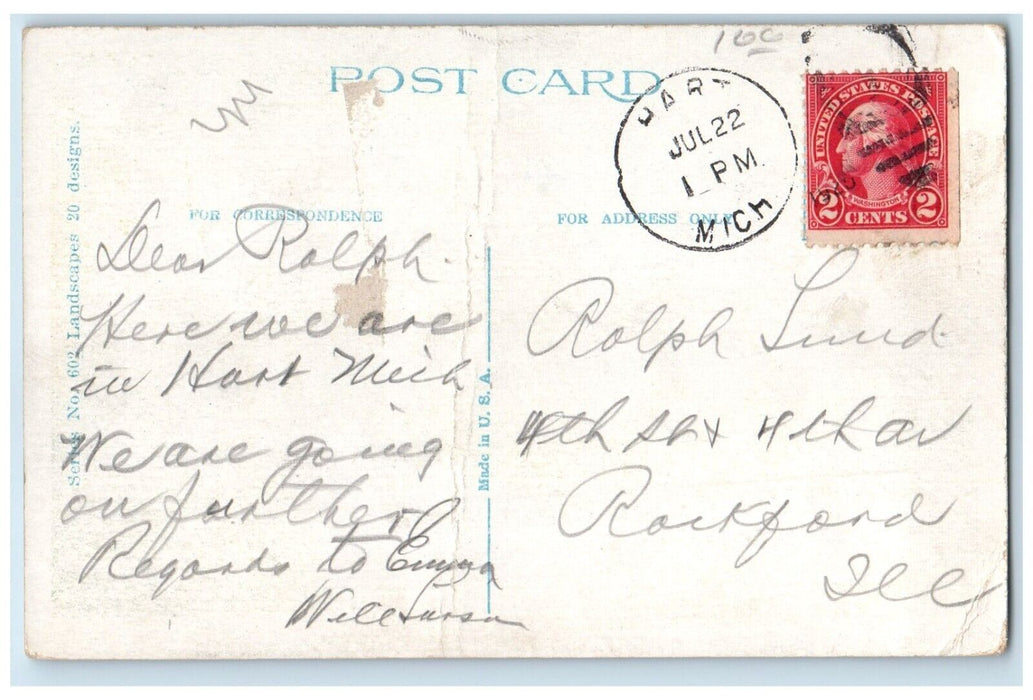 166
POST CARD
HART
JUL 22
1 PM
MICH
UNITED STATES POSTAGE
WASHINGTON
2 CENTS 2
FOR CORRESPONDENCE
FOR ADDRESS ONLY
Series No. 602 Landscapes 20 designs.
Made in U. S. A.
Dear Ralph.
Here we are
in Hart Mich
We are going
on further
Regards to Emma
Will
Ralph Lund
4th st & 4th av
Rockford
Ill